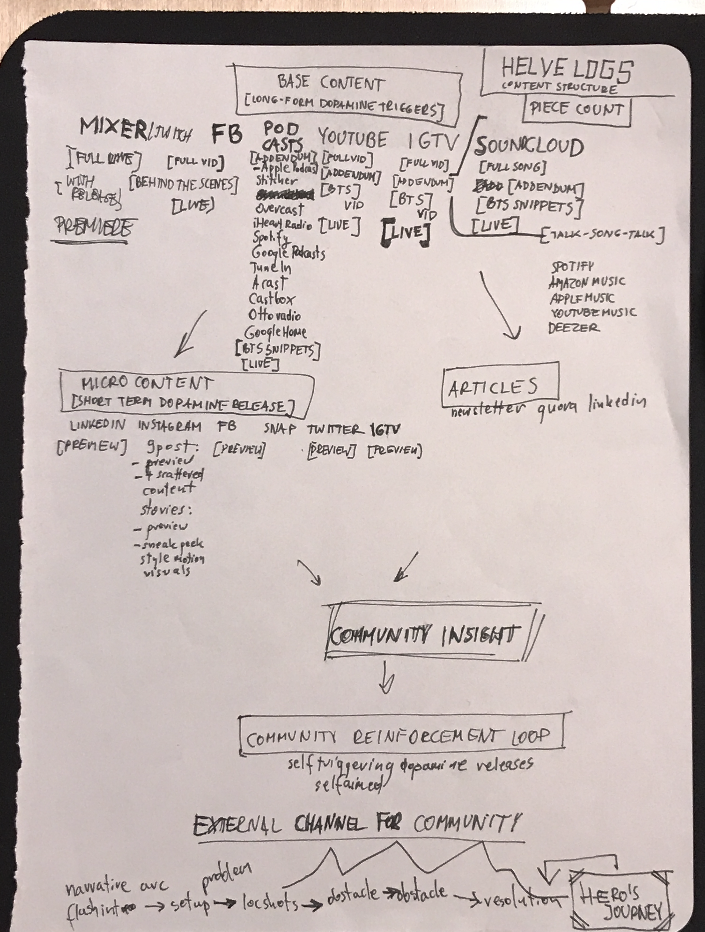 HELVE LOGS
CONTENT STRUCTURE
PIECE COUNT
BASE CONTENT
[LONG-FORM DOPAMINE TRIGGERS]
MIXER/TWITCH
[FULL
WITH
PREMIERE
FB
[FULL VID]
[BEHIND THE SCENES]
[LIVE]
POD
CASTS
[ADDENDUM]
- Apple Podcast
Stitcher
Overcast
iHeart Radio
Spotify
Google Podcasts
TuneIn
Acast
Castbox
Otto radio
Google Home
[BTS SNIPPETS]
[LIVE]
YOUTUBE
[FULL VID]
[ADDENDUM]
[BTS]
VID
[LIVE]
IGTV
[FULL VID]
[ADDENDUM]
[BTS]
VID
[LIVE]
SOUNDCLOUD
[FULL SONG]
[ADDENDUM]
[BTS SNIPPETS]
[LIVE]
[TALK-SONG-TALK]
SPOTIFY
AMAZON MUSIC
APPLE MUSIC
YOUTUBE MUSIC
DEEZER
MICRO CONTENT
[SHORT TERM DOPAMINE RELEASE]
LINKEDIN INSTAGRAM FB SNAP TWITTER IGTV
[PREVIEW] 9post: [PREVIEW] [PREVIEW] [PREVIEW]
- preview
- 4 scattered
content
stories:
- preview
- sneak peek
style motion
visuals
ARTICLES
newsletter quora linkedin
COMMUNITY INSIGHT
COMMUNITY REINFORCEMENT LOOP
self triggering dopamine releases
selfaimed
EXTERNAL CHANNEL FOR COMMUNITY
narrative arc problem
flashintro → setup → locshots → obstacle → obstacle → resolution
HERO'S
JOURNEY